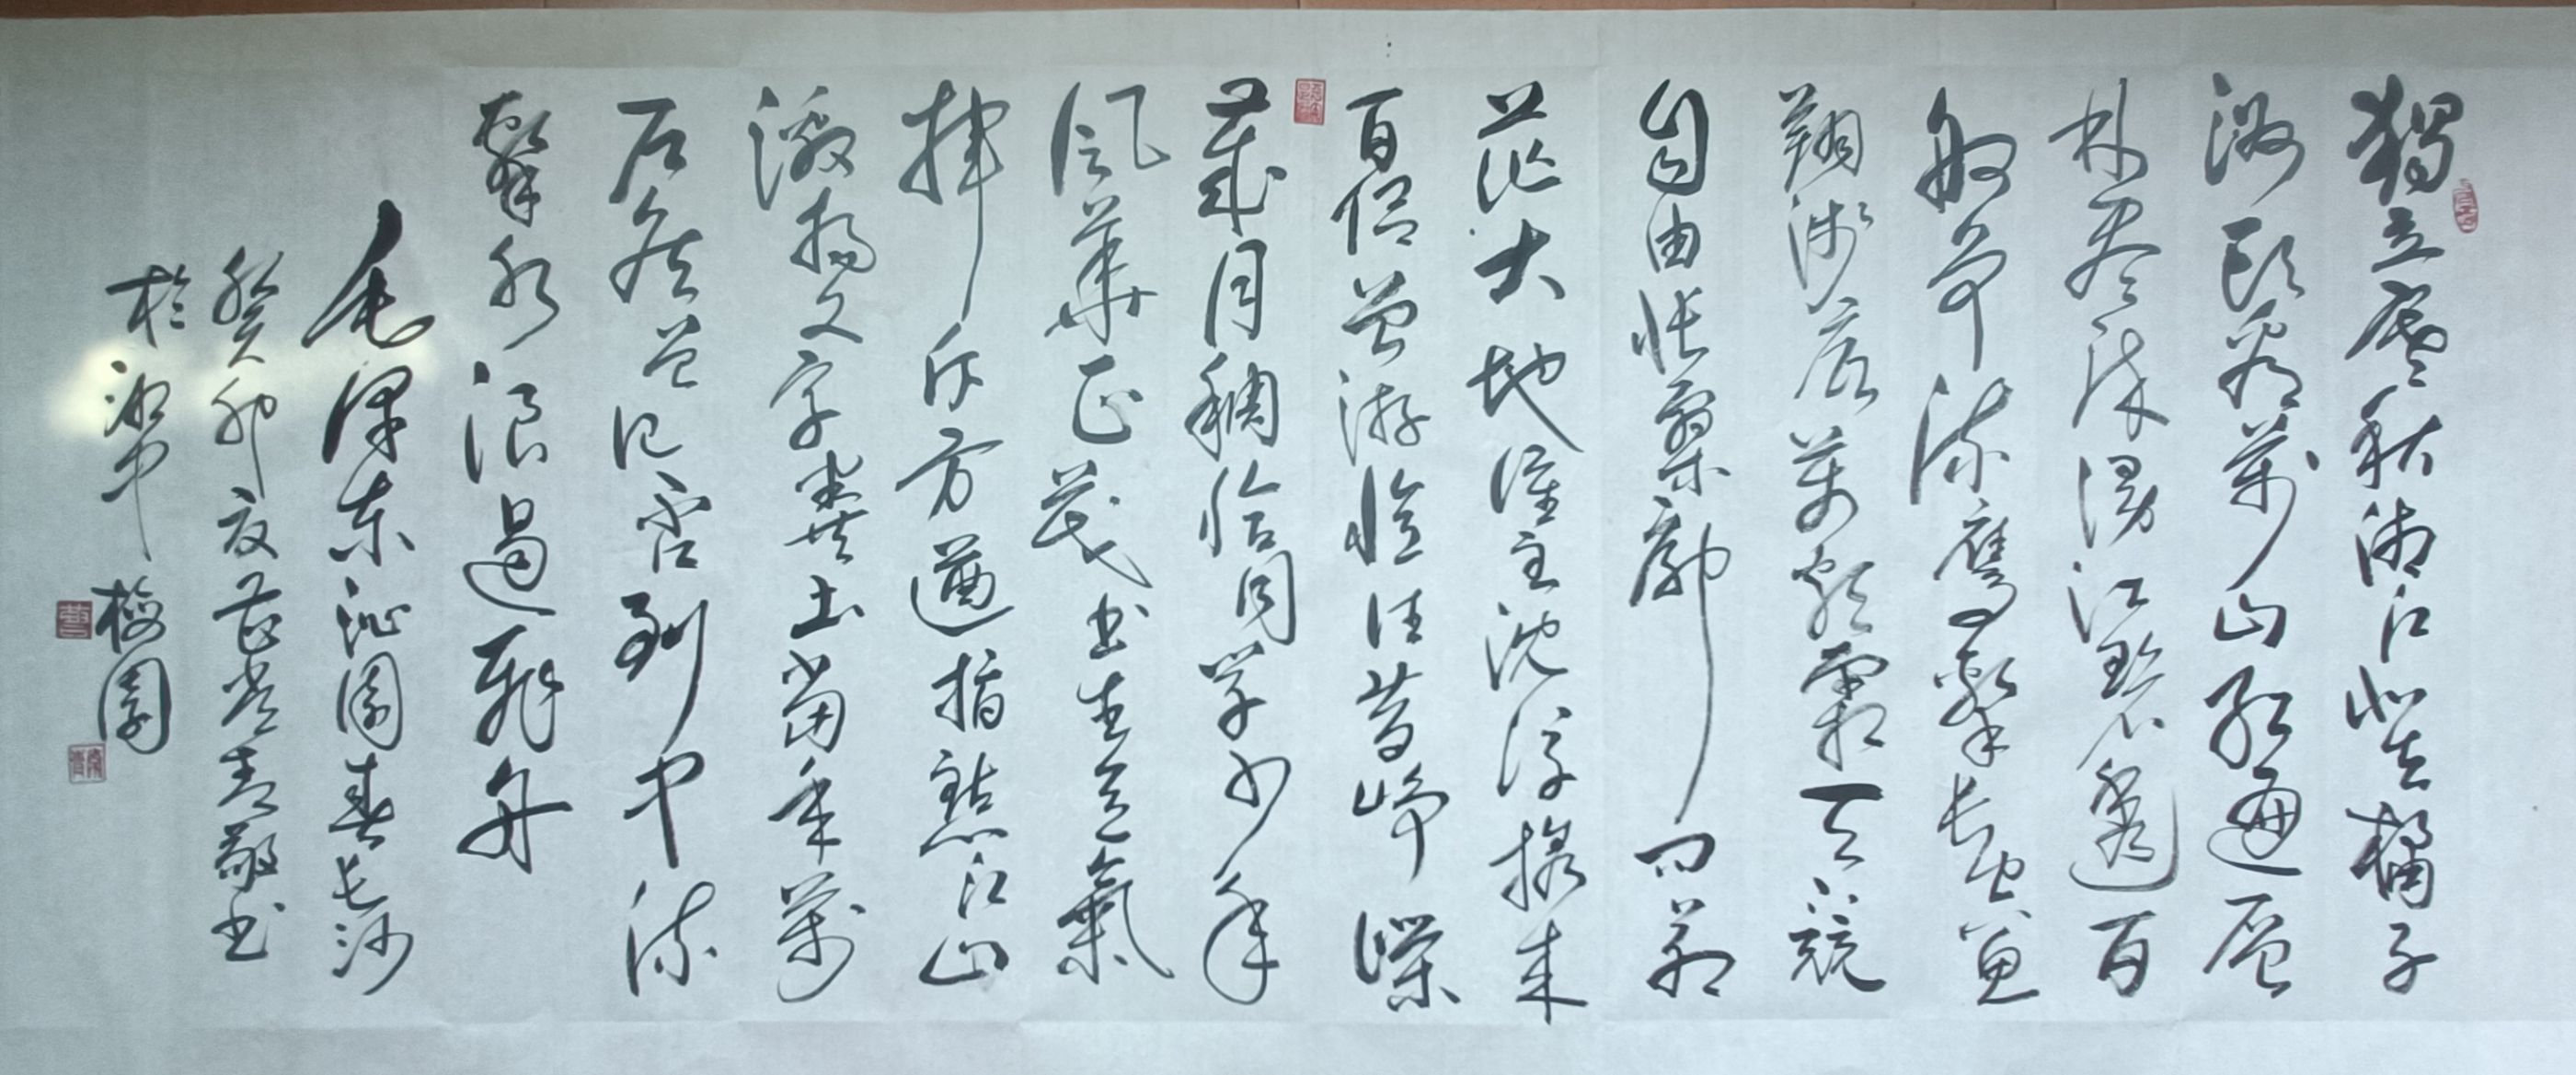 獨立寒秋湘江北去橘子
洲頭看萬山紅遍層
林盡染漫江碧透百
舸爭流鷹擊長空魚
翔淺底萬類霜天競
自由悵寥廓問蒼
茫大地誰主沈浮攜來
百侶曾游憶往昔崢嶸
歲月稠恰同學少年
風華正茂書生意氣
揮斥方遒指點江山
激揚文字糞土當年萬
户侯曾記否到中流
擊水浪遏飛舟
毛澤東沁園春長沙
癸卯夏青敬书
於中梅園